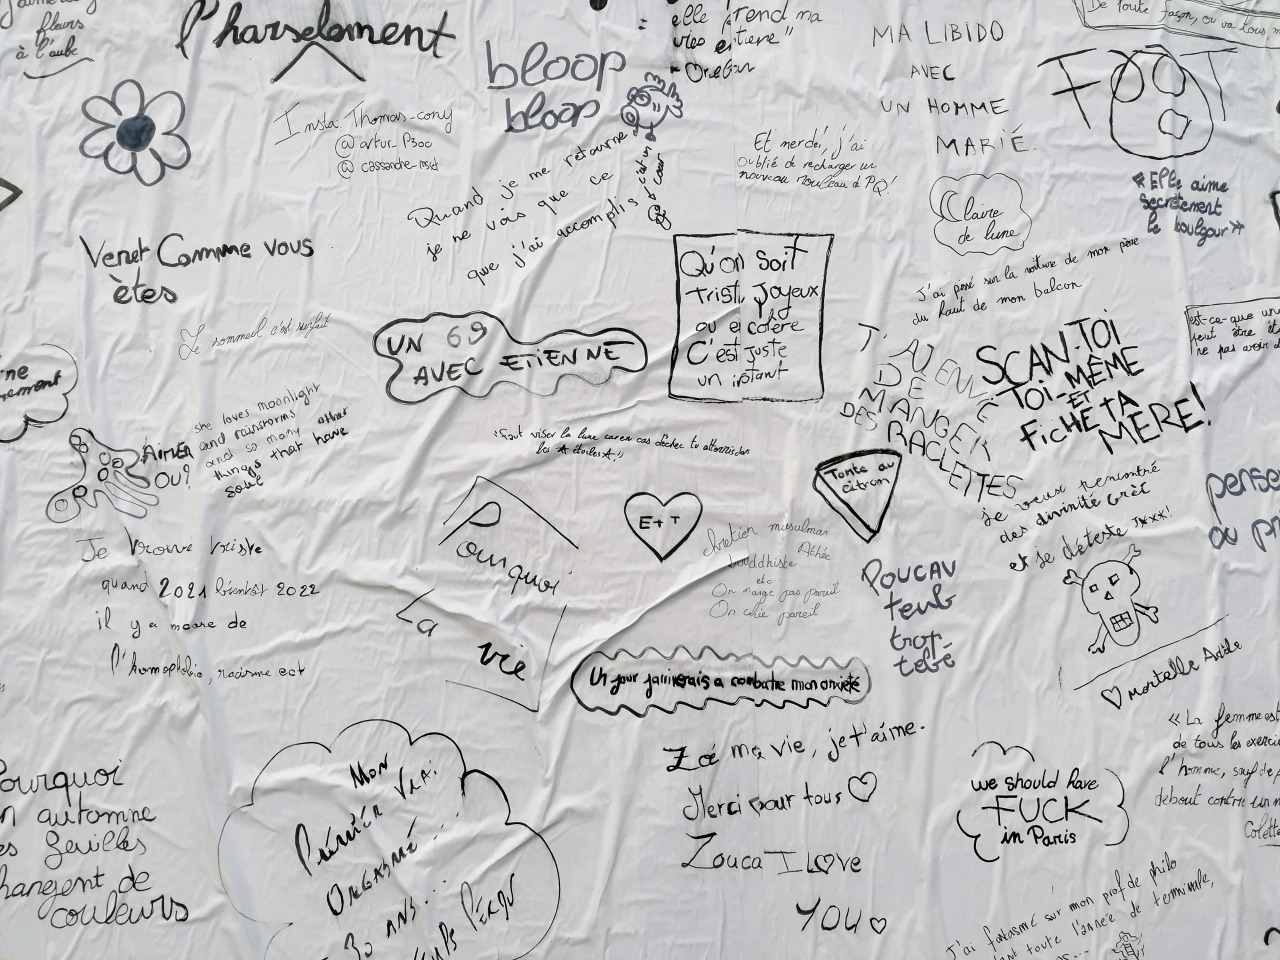 fleurs
à l'aube
l'harselement
bloop
bloop
elle prend ma
vie entière"
- Orelsan
MA LIBIDO
AVEC
UN HOMME
MARIÉ.
De toute façon, on va tous
FOOT
Insta: Thomas-cony
@artur_P300
@cassandre_mset
Quand je me retourne
je ne vois que ce
que j'ai accomplis
c'était un
coup d cœur
Et merde, j'ai
oublié de recharger un
nouveau rouleau d PQ!
Claire
de lune
"Elle aime
secrètement
le boulgour"
Venet Comme vous
êtes
Le sommeil c'est surfait
UN 69
AVEC ETIENNE
Qu'on soit
trist, Joyeux
ou e colère
C'est juste
un instant
J'ai pissé sur la voiture de mon père
du haut de mon balcon
T'AU ENVIE
DE
MANGER
DES RACLETTES
SCAN-TOI
TOI-MÊME
ET
FICHE TA
MERE!
est-ce-que
peut être
ne pas avoir
AIMER
OU?
she loves moonlight
and rainstorms
and so many other
things that have
soul
"Faut viser la lune car en cas d'échec tu atterris dans
les étoiles"
Tarte au
citron
je veux rencontré
des divinité Grèc
et je déteste
pense
Pourquoi
La
vie
E+T
chretien musulman
bouddhiste Athée
etc...
On mange pas pareil
On chie pareil
POUCAV
teub
trop
tebé
Je trouve triste
quand 2021 bientôt 2022
il y a encore de
l'homophobie, racisme ect
Un jour j'arriverais a combatre mon anxiété
♡ mortelle Adèle
"La femme est
de tous les exerci
l'homme, sauf de
debout contre un
Colette
Zoé ma vie, je t'aime.
Merci pour tous ♡
Zouca I L♡ve
YOU ♡
we should have
FUCK
in Paris
Pourquoi
en automne
les feuilles
changent de
couleurs
MON
PREMIER VRAI
ORGASME...
30 ANS...
TEMPS PERDU
J'ai fantasmé sur mon prof de philo
toute l'année de terminale,